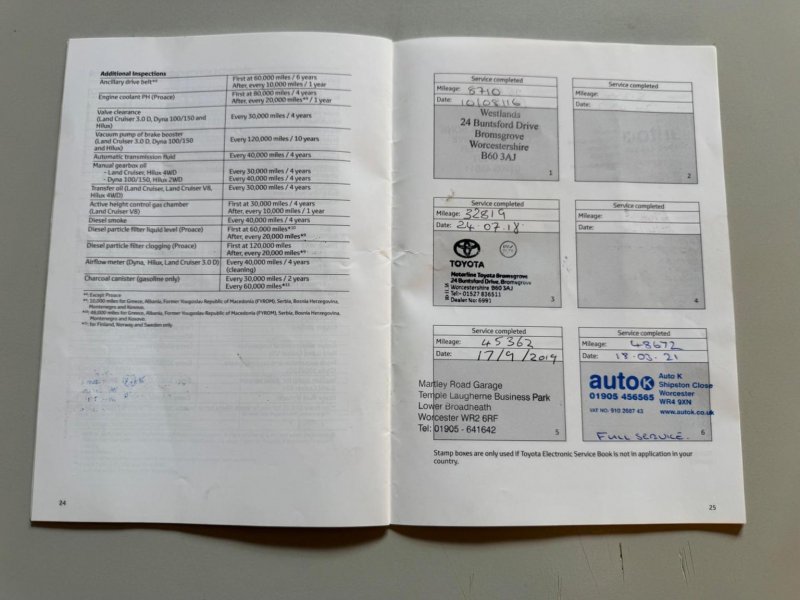 Additional Inspections
Ancillary drive belt*⁸ First at 60,000 miles / 6 years
After, every 10,000 miles / 1 year
Engine coolant PH (Proace) First at 80,000 miles / 4 years
After, every 20,000 miles*⁹ / 1 year
Valve clearance
(Land Cruiser 3.0 D, Dyna 100/150 and Hilux) Every 30,000 miles / 4 years
Vacuum pump of brake booster
(Land Cruiser 3.0 D, Dyna 100/150 and Hilux) Every 120,000 miles / 10 years
Automatic transmission fluid Every 40,000 miles / 4 years
Manual gearbox oil
- Land Cruiser, Hilux 4WD Every 30,000 miles / 4 years
- Dyna 100/150, Hilux 2WD Every 40,000 miles / 4 years
Transfer oil (Land Cruiser, Land Cruiser V8, Hilux 4WD) Every 30,000 miles / 4 years
Active height control gas chamber
(Land Cruiser V8) First at 30,000 miles / 4 years
After, every 10,000 miles / 1 year
Diesel smoke Every 40,000 miles / 4 years
Diesel particle filter liquid level (Proace) First at 60,000 miles*¹⁰
After, every 20,000 miles*⁹
Diesel particle filter clogging (Proace) First at 120,000 miles
After, every 20,000 miles*⁹
Airflow meter (Dyna, Hilux, Land Cruiser 3.0 D) Every 40,000 miles / 4 years
(cleaning)
Charcoal canister (gasoline only) Every 30,000 miles / 2 years
Every 60,000 miles*¹¹
Except Proace
10,000 miles for Greece, Albania, Former Yougoslav Republic of Macedonia (FYROM), Serbia, Bosnia Herzegovina,
Montenegro and Kosovo.
48,000 miles for Greece, Albania, Former Yougoslav Republic of Macedonia (FYROM), Serbia, Bosnia Herzegovina,
Montenegro and Kosovo.
for Finland, Norway and Sweden only.
24
Service completed
Mileage: 8710
Date: 10/08/16
Westlands
24 Buntsford Drive
Bromsgrove
Worcestershire
B60 3AJ
1
Service completed
Mileage:
Date:
2
Service completed
Mileage: 32819
Date: 24.07.18
TOYOTA
Motorline Toyota Bromsgrove
24 Buntsford Drive, Bromsgrove
Worcestershire B60 3AJ
Tel: 01527 836511
Dealer No: 6991
3
Service completed
4
Service completed
Mileage: 45362
Date: 17/9/2019
Martley Road Garage
Temple Laugherne Business Park
Lower Broadheath
Worcester WR2 6RF
Tel: 01905 - 641642
5
Service completed
Mileage: 48672
Date: 18.03.21
autoK
01905 456565
VAT NO: 910 2687 43
Auto K
Shipston Close
Worcester
WR4 9XN
www.autok.co.uk
FULL SERVICE.
6
Stamp boxes are only used if Toyota Electronic Service Book is not in application in your
country.
25